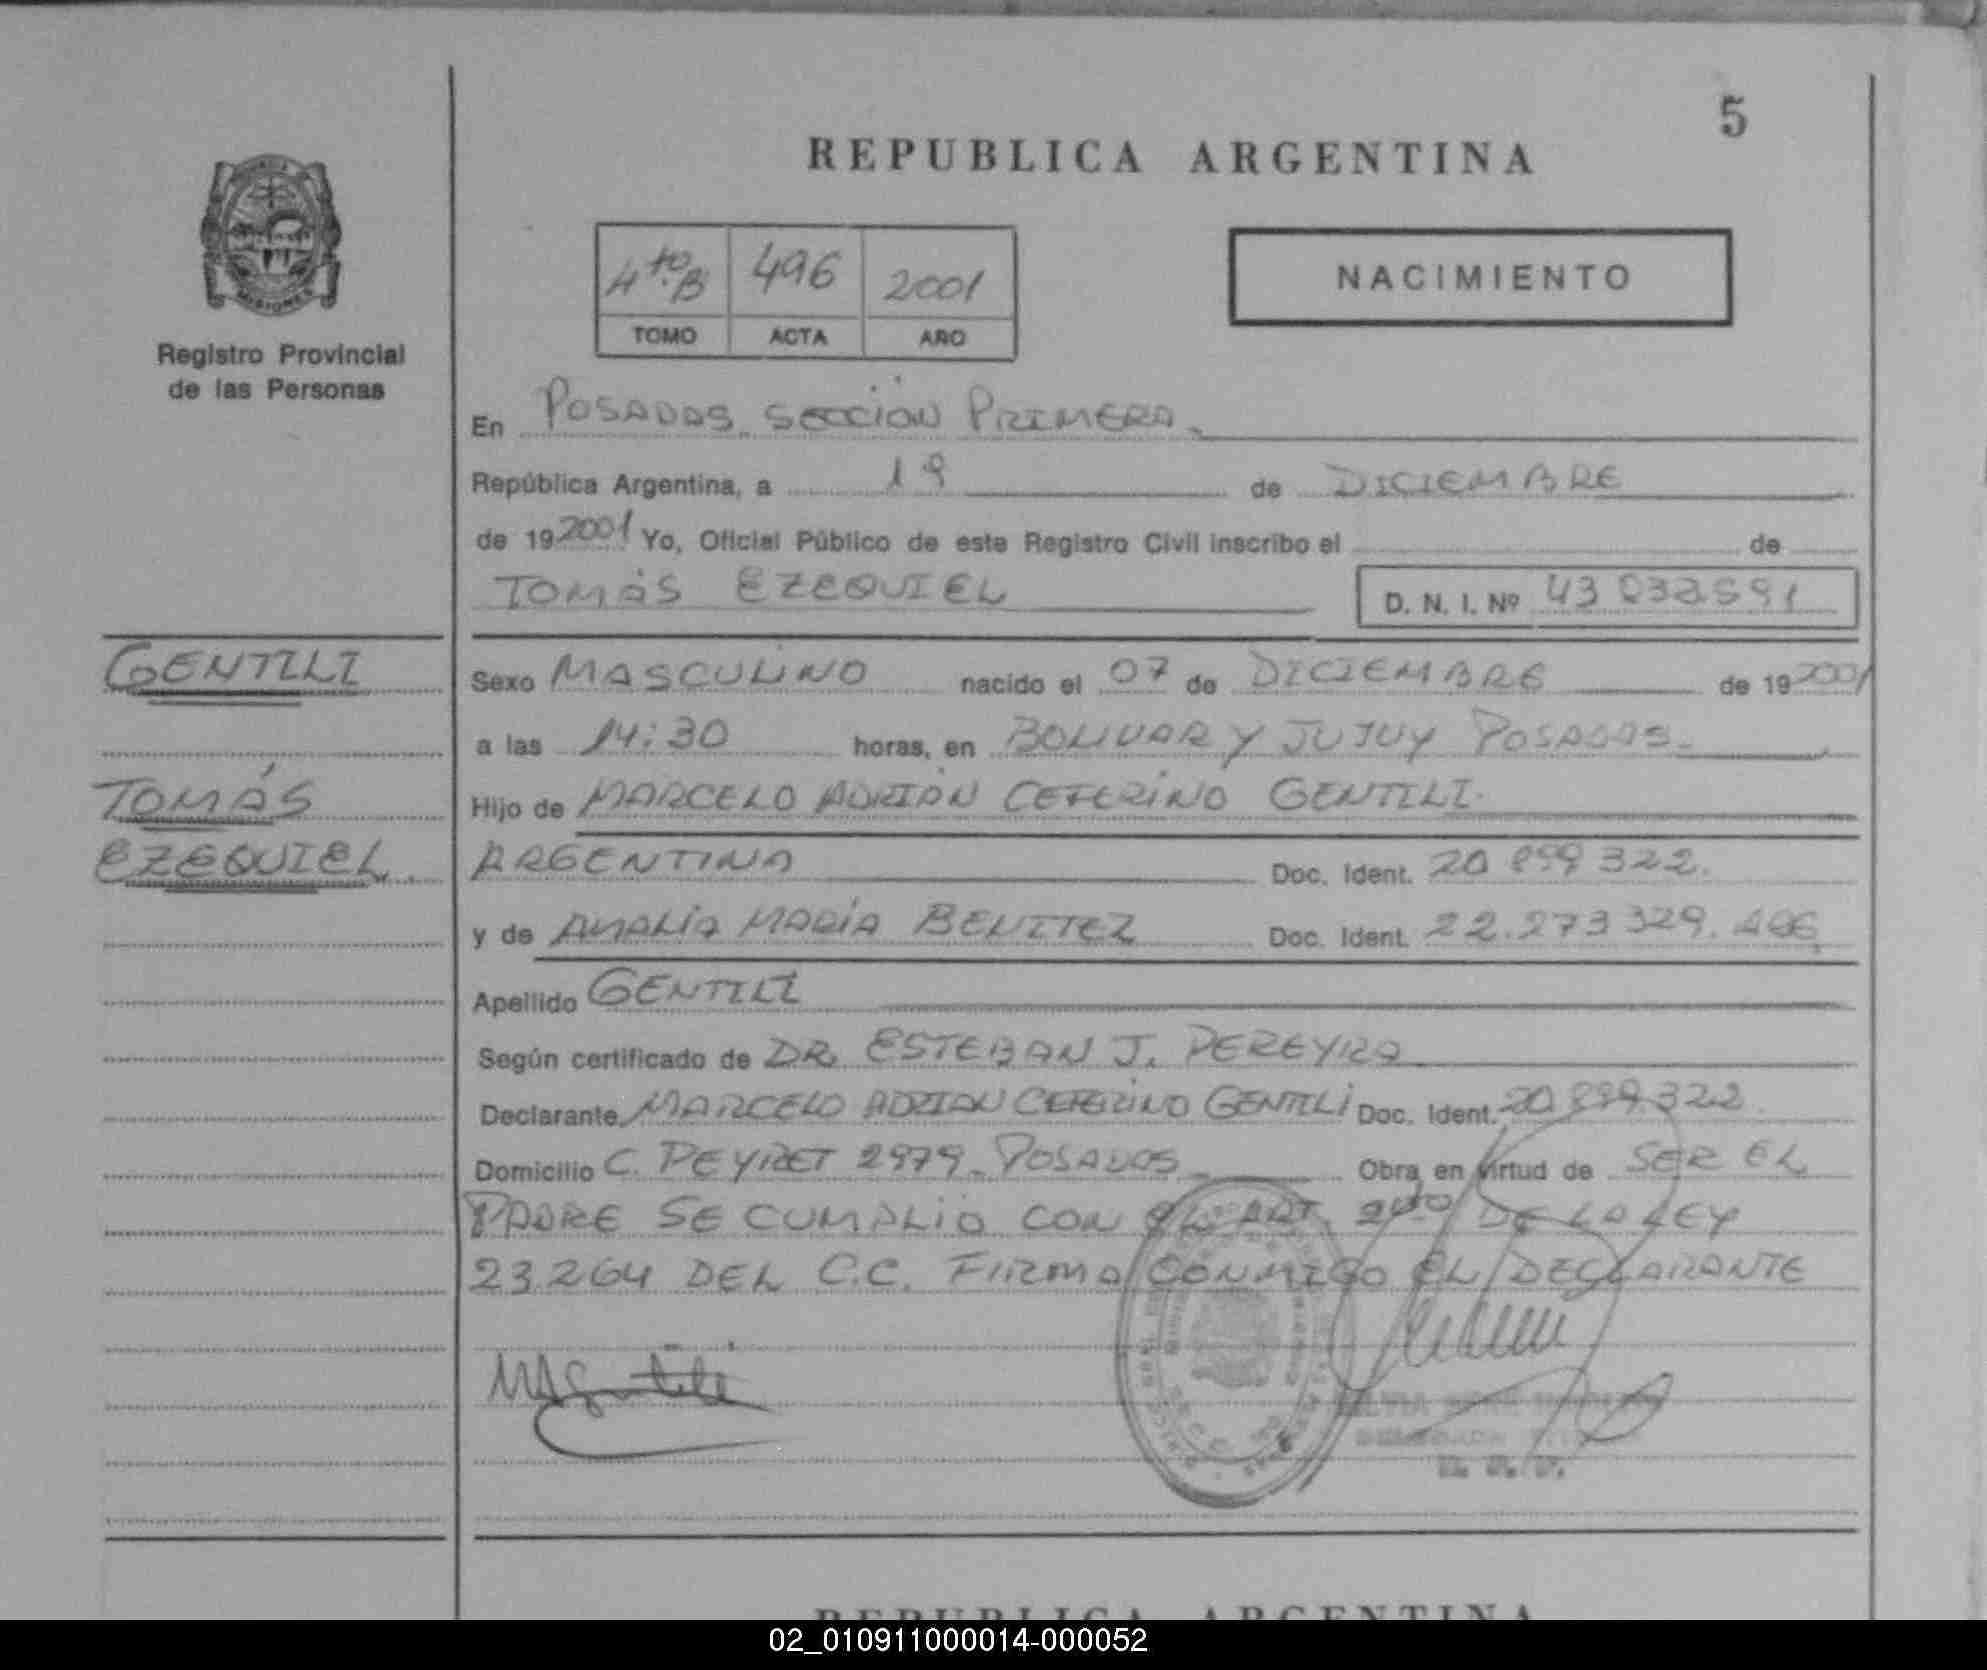 5
REPUBLICA ARGENTINA
MISIONES
Registro Provincial
de las Personas
4to B 496 2001
TOMO ACTA AÑO
NACIMIENTO
En POSADAS SECCION PRIMERA
República Argentina, a 19 de DICIEMBRE
de 19 2001 Yo, Oficial Público de este Registro Civil inscribo el de
TOMÁS EZEQUIEL D. N. I. Nº 43 032591
GENTILI
TOMÁS
EZEQUIEL.
Sexo MASCULINO nacido el 07 de DICIEMBRE de 19 2001
a las 14:30 horas, en BOLIVAR Y JUJUY POSADAS
Hijo de MARCELO ADRIÁN CEFERINO GENTILI
ARGENTINA Doc. Ident. 20 899 322.
y de AMALIA MARÍA BENITEZ Doc. Ident. 22.273 329. ARG.
Apellido GENTILI
Según certificado de DR. ESTEBAN J. PEREYRA
Declarante MARCELO ADRIAN CEFERINO GENTILI Doc. Ident. 20 899.322
Domicilio C. PEYRET 2979. POSADAS Obra en virtud de SER EL
PADRE SE CUMPLIO CON EL ART. DE LA LEY
23.264 DEL C.C. FIRMA CONMIGO EL DECLARANTE
REPUBLICA ARGENTINA
02_010911000014-000052